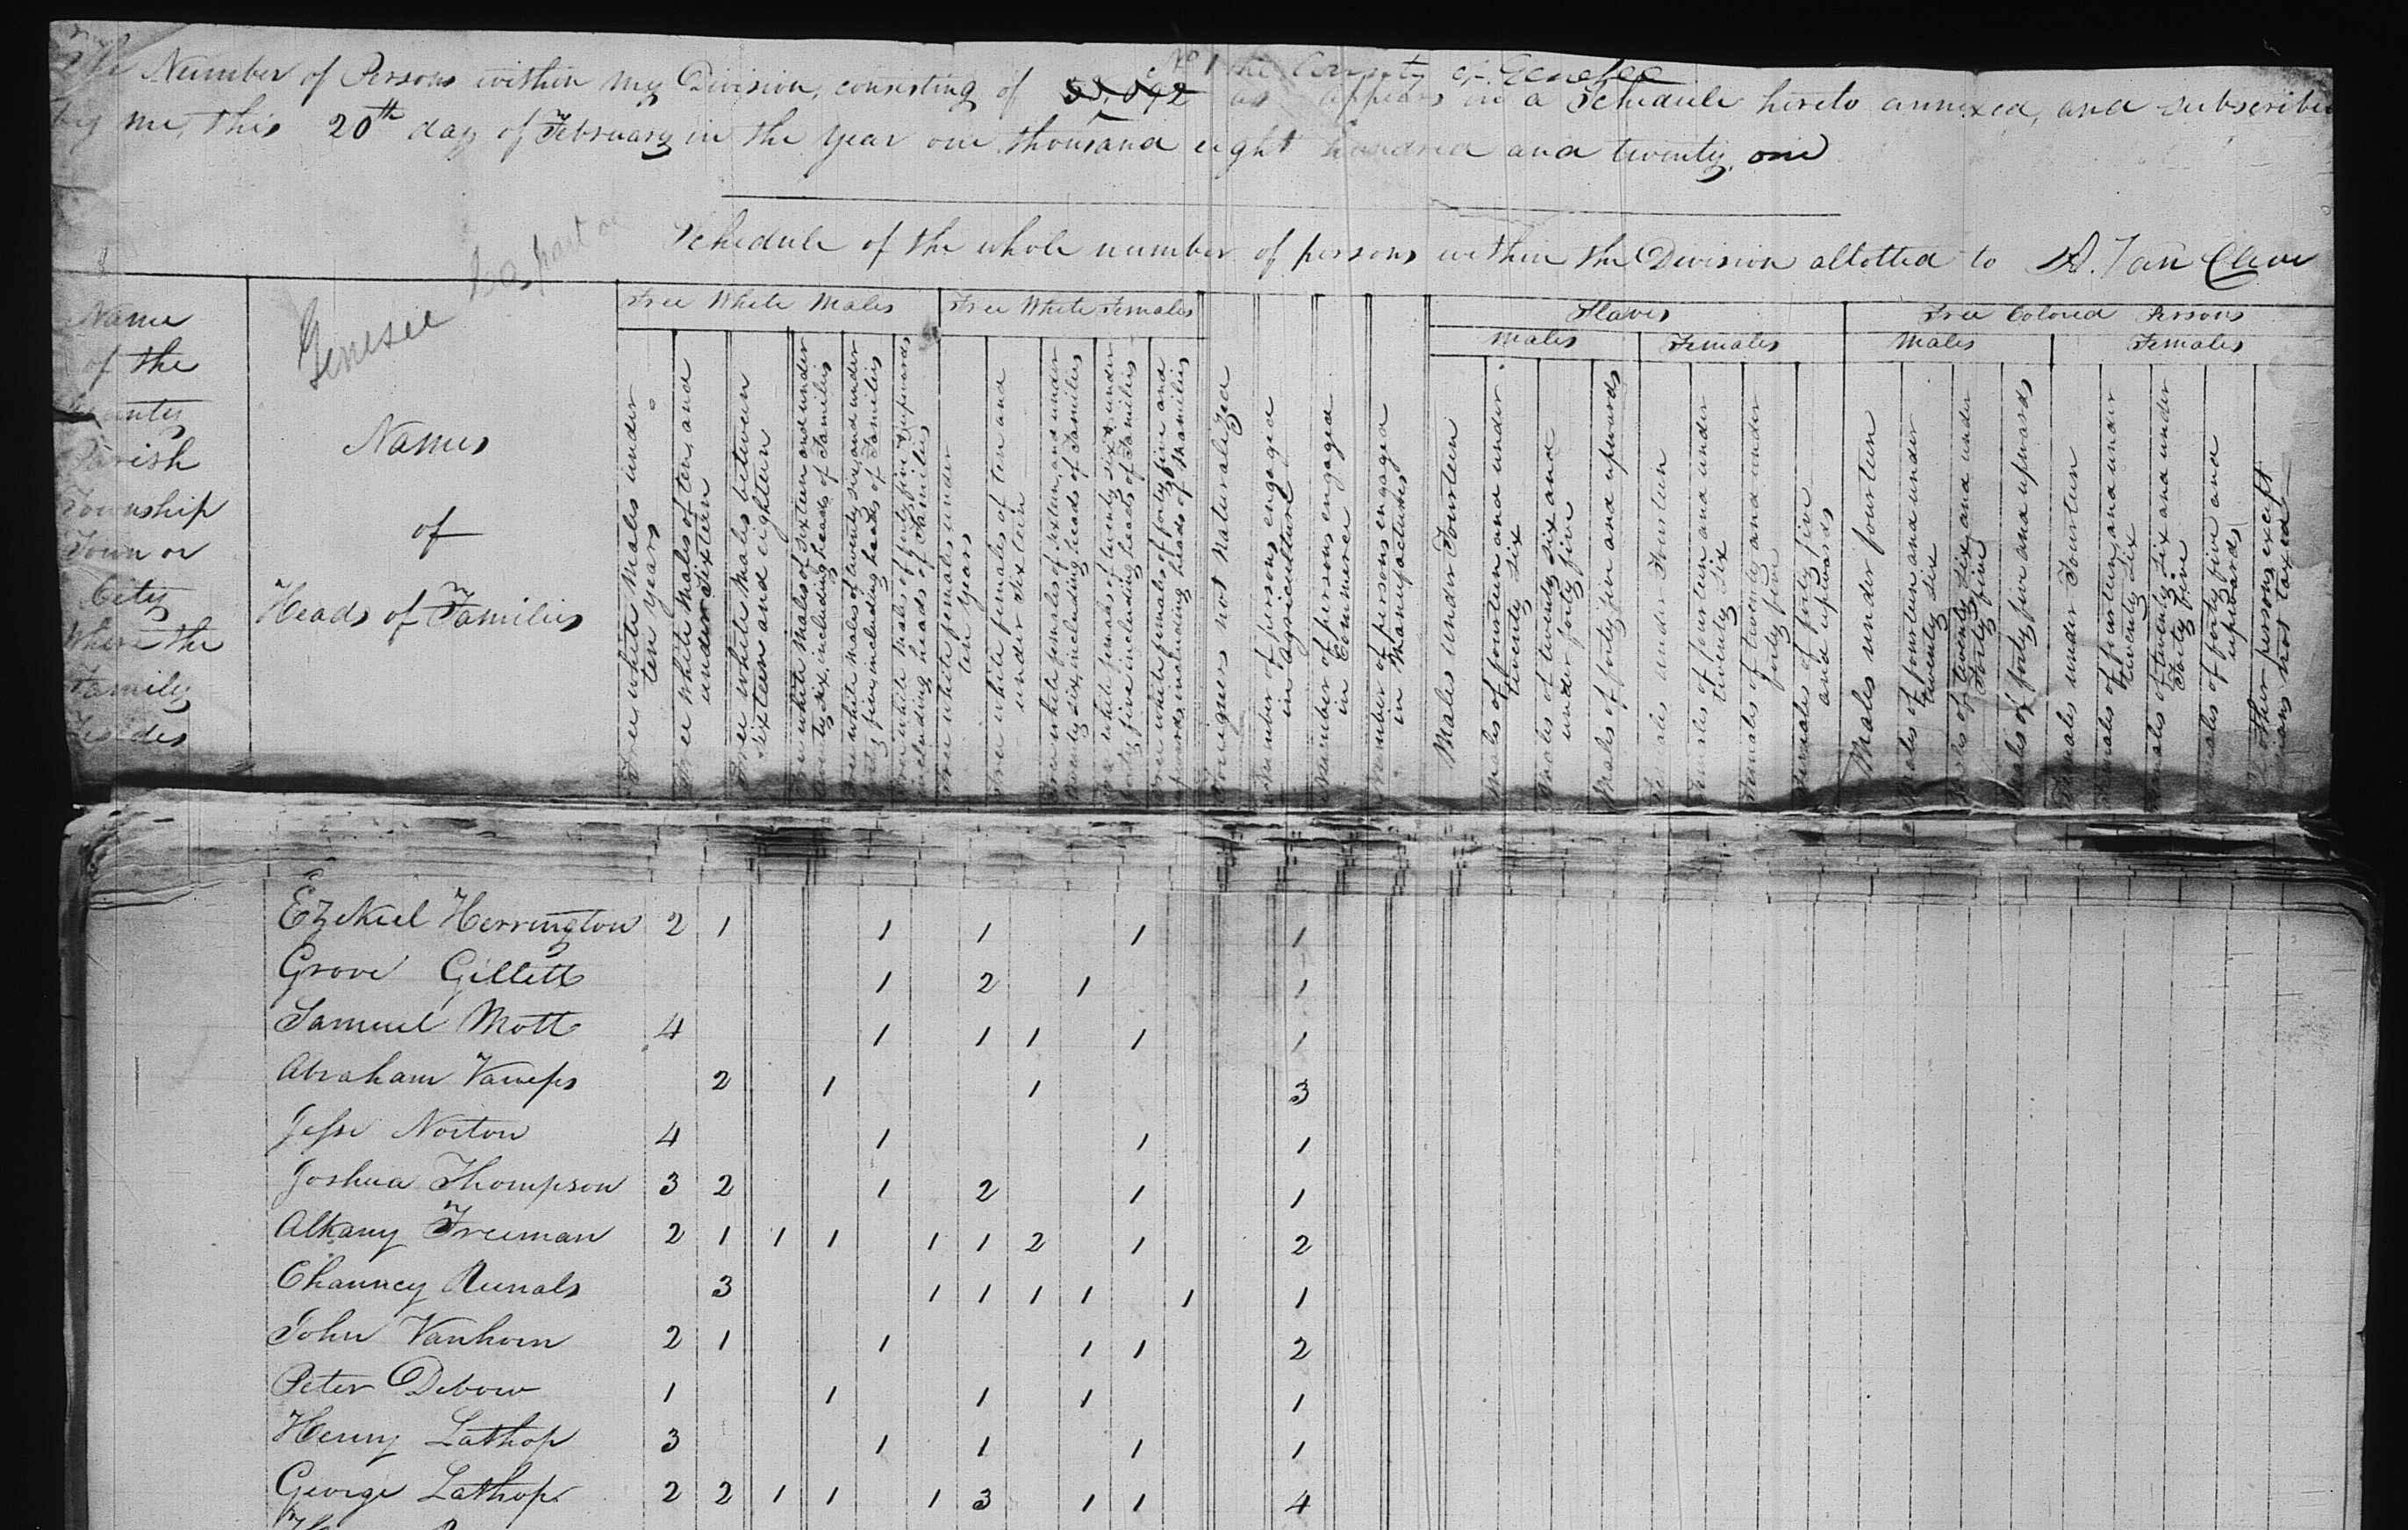 The Number of Persons within my Division, consisting of
No 1 the County of Genesee
as appears in a Schedule hereto annexed, and subscribed
by me, this 20th day of February in the year one thousand eight hundred and twenty one
Schedule of the whole number of persons within the Division allotted to
Genesee
part of
Name
of the
County
Parish
Township
Town or
City
Where the
Family
Resides
Names
of
Heads of Families
Free White Males
Free White Females
Slaves
Free Colored Persons
Males
Females
Males
Females
Free white Males under ten years
Free white Males of ten and under Sixteen
Free white Males between Sixteen and eighteen
Free white Males of Sixteen and under twenty six, including heads of Families
Free white Males of twenty six, and under forty five, including heads of Families
Free white Males of forty five & upwards including heads of Families
Free white females, under ten years
Free white females of ten and under Sixteen
Free white females of Sixteen, and under twenty six, including heads of Families
Free white females of twenty six & under forty five including heads of Families
Free white females of forty five and upwards, including heads of Families
Foreigners not Naturalized
Number of persons engaged in agriculture
Number of persons engaged in Commerce
Number of persons engaged in Manufactures
Males under Fourteen
Males of fourteen and under twenty six
Males of twenty six and under forty five
Males of forty five and upwards
Females under Fourteen
Females of fourteen and under twenty six
Females of twenty and under forty five
Females of forty five and upwards
Males under fourteen
Males of fourteen and under twenty six
Males of twenty six and under Forty five
Males of forty five and upwards
Females under Fourteen
Females of fourteen and under twenty six
Females of twenty six and under Forty five
Females of forty five and upwards
other persons, except Indians not taxed
Ezekiel Herrington 2 1 1 1 1 1
Grove Gillett 1 2 1 1
Samuel Mott 4 1 1 1 1 1
Abraham Vaneps 2 1 1 3
Jesse Norton 4 1 1 1
Joshua Thompson 3 2 1 2 1 1
Alkany Freeman 2 1 1 1 1 1 2 1 2
Chauncy Runals 3 1 1 1 1 1 1
John Vanhorn 2 1 1 1 1 2
Peter Debow 1 1 1 1 1
Henry Lathop 3 1 1 1 1
George Lathop 2 2 1 1 1 3 1 1 4